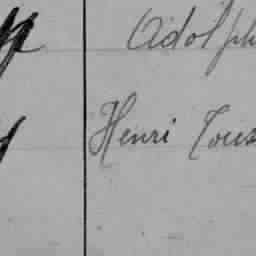 Adolph
Henri Tous